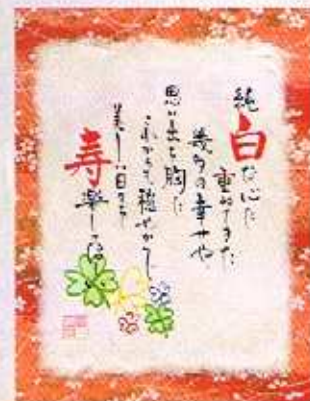 純白な心に
重ねてきた
幾多の幸せや
思い出を胸に
これからも穏やかで
美しい日々を
寿